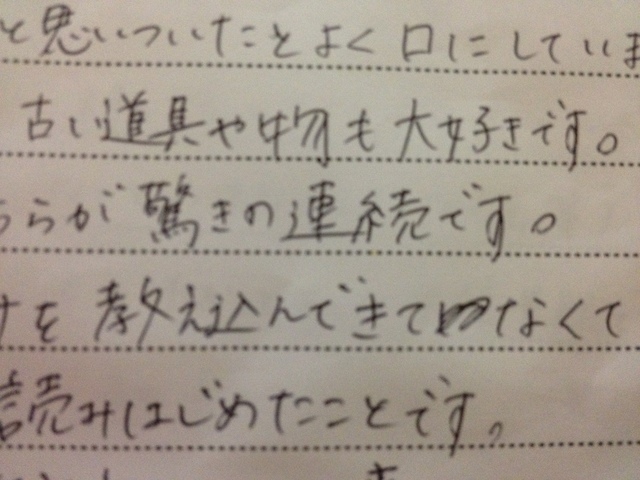 と思いついたことよく口にしていま
古い道具や物も大好きです。
らが驚きの連続です。
けを教え込んできてなくて
読みはじめたことです。